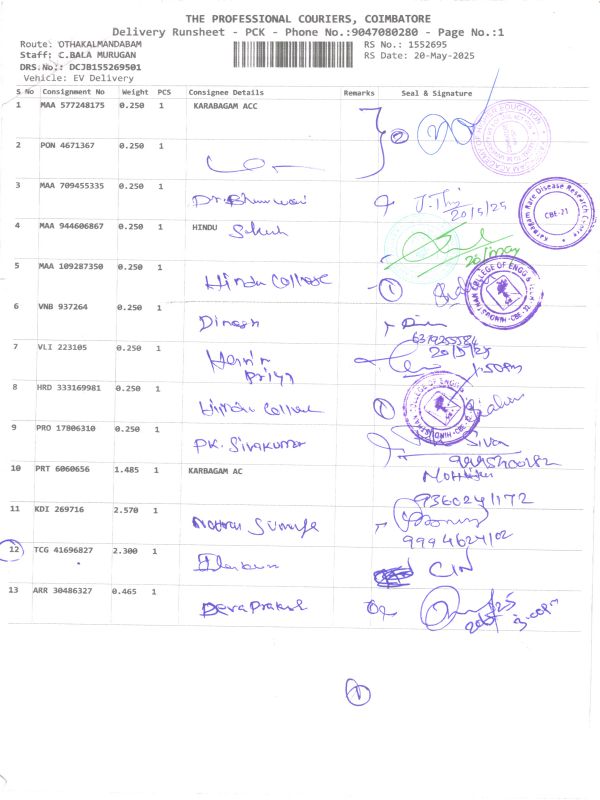 THE PROFESSIONAL COURIERS, COIMBATORE
Delivery Runsheet - PCK - Phone No.:9047080280 - Page No.:1
Route: OTHAKALMANDABAM RS No.: 1552695
Staff: C.BALA MURUGAN RS Date: 20-May-2025
DRS.No.: DCJB155269501
Vehicle: EV Delivery
S No Consignment No Weight PCS Consignee Details Remarks Seal & Signature
1 MAA 577248175 0.250 1 KARABAGAM ACC
2
2 PON 4671367 0.250 1
3 MAA 709455335 0.250 1
20/5/25
Karbagam Rare Disease Research Centre
CBE-21
4 MAA 944606867 0.250 1 HINDU
5 MAA 109287350 0.250 1 Hindu College 1
HINDUSTHAN COLLEGE OF ENGG & TECH CBE-32
6 VNB 937264 0.250 1 Dinesh
6379255584
7 VLI 223105 0.250 1 Harini Priya 20/5/25
1:50pm
8 HRD 333169981 0.250 1 Hindu College 1
9 PRO 17806310 0.250 1 PK. Sivakumar Siva
10 PRT 6060656 1.485 1 KARBAGAM AC
9360241172
11 KDI 269716 2.570 1
9994624102
12 TCG 41696827 2.300 1 CIN
13 ARR 30486327 0.465 1 Deva Prakash
3:00pm
1